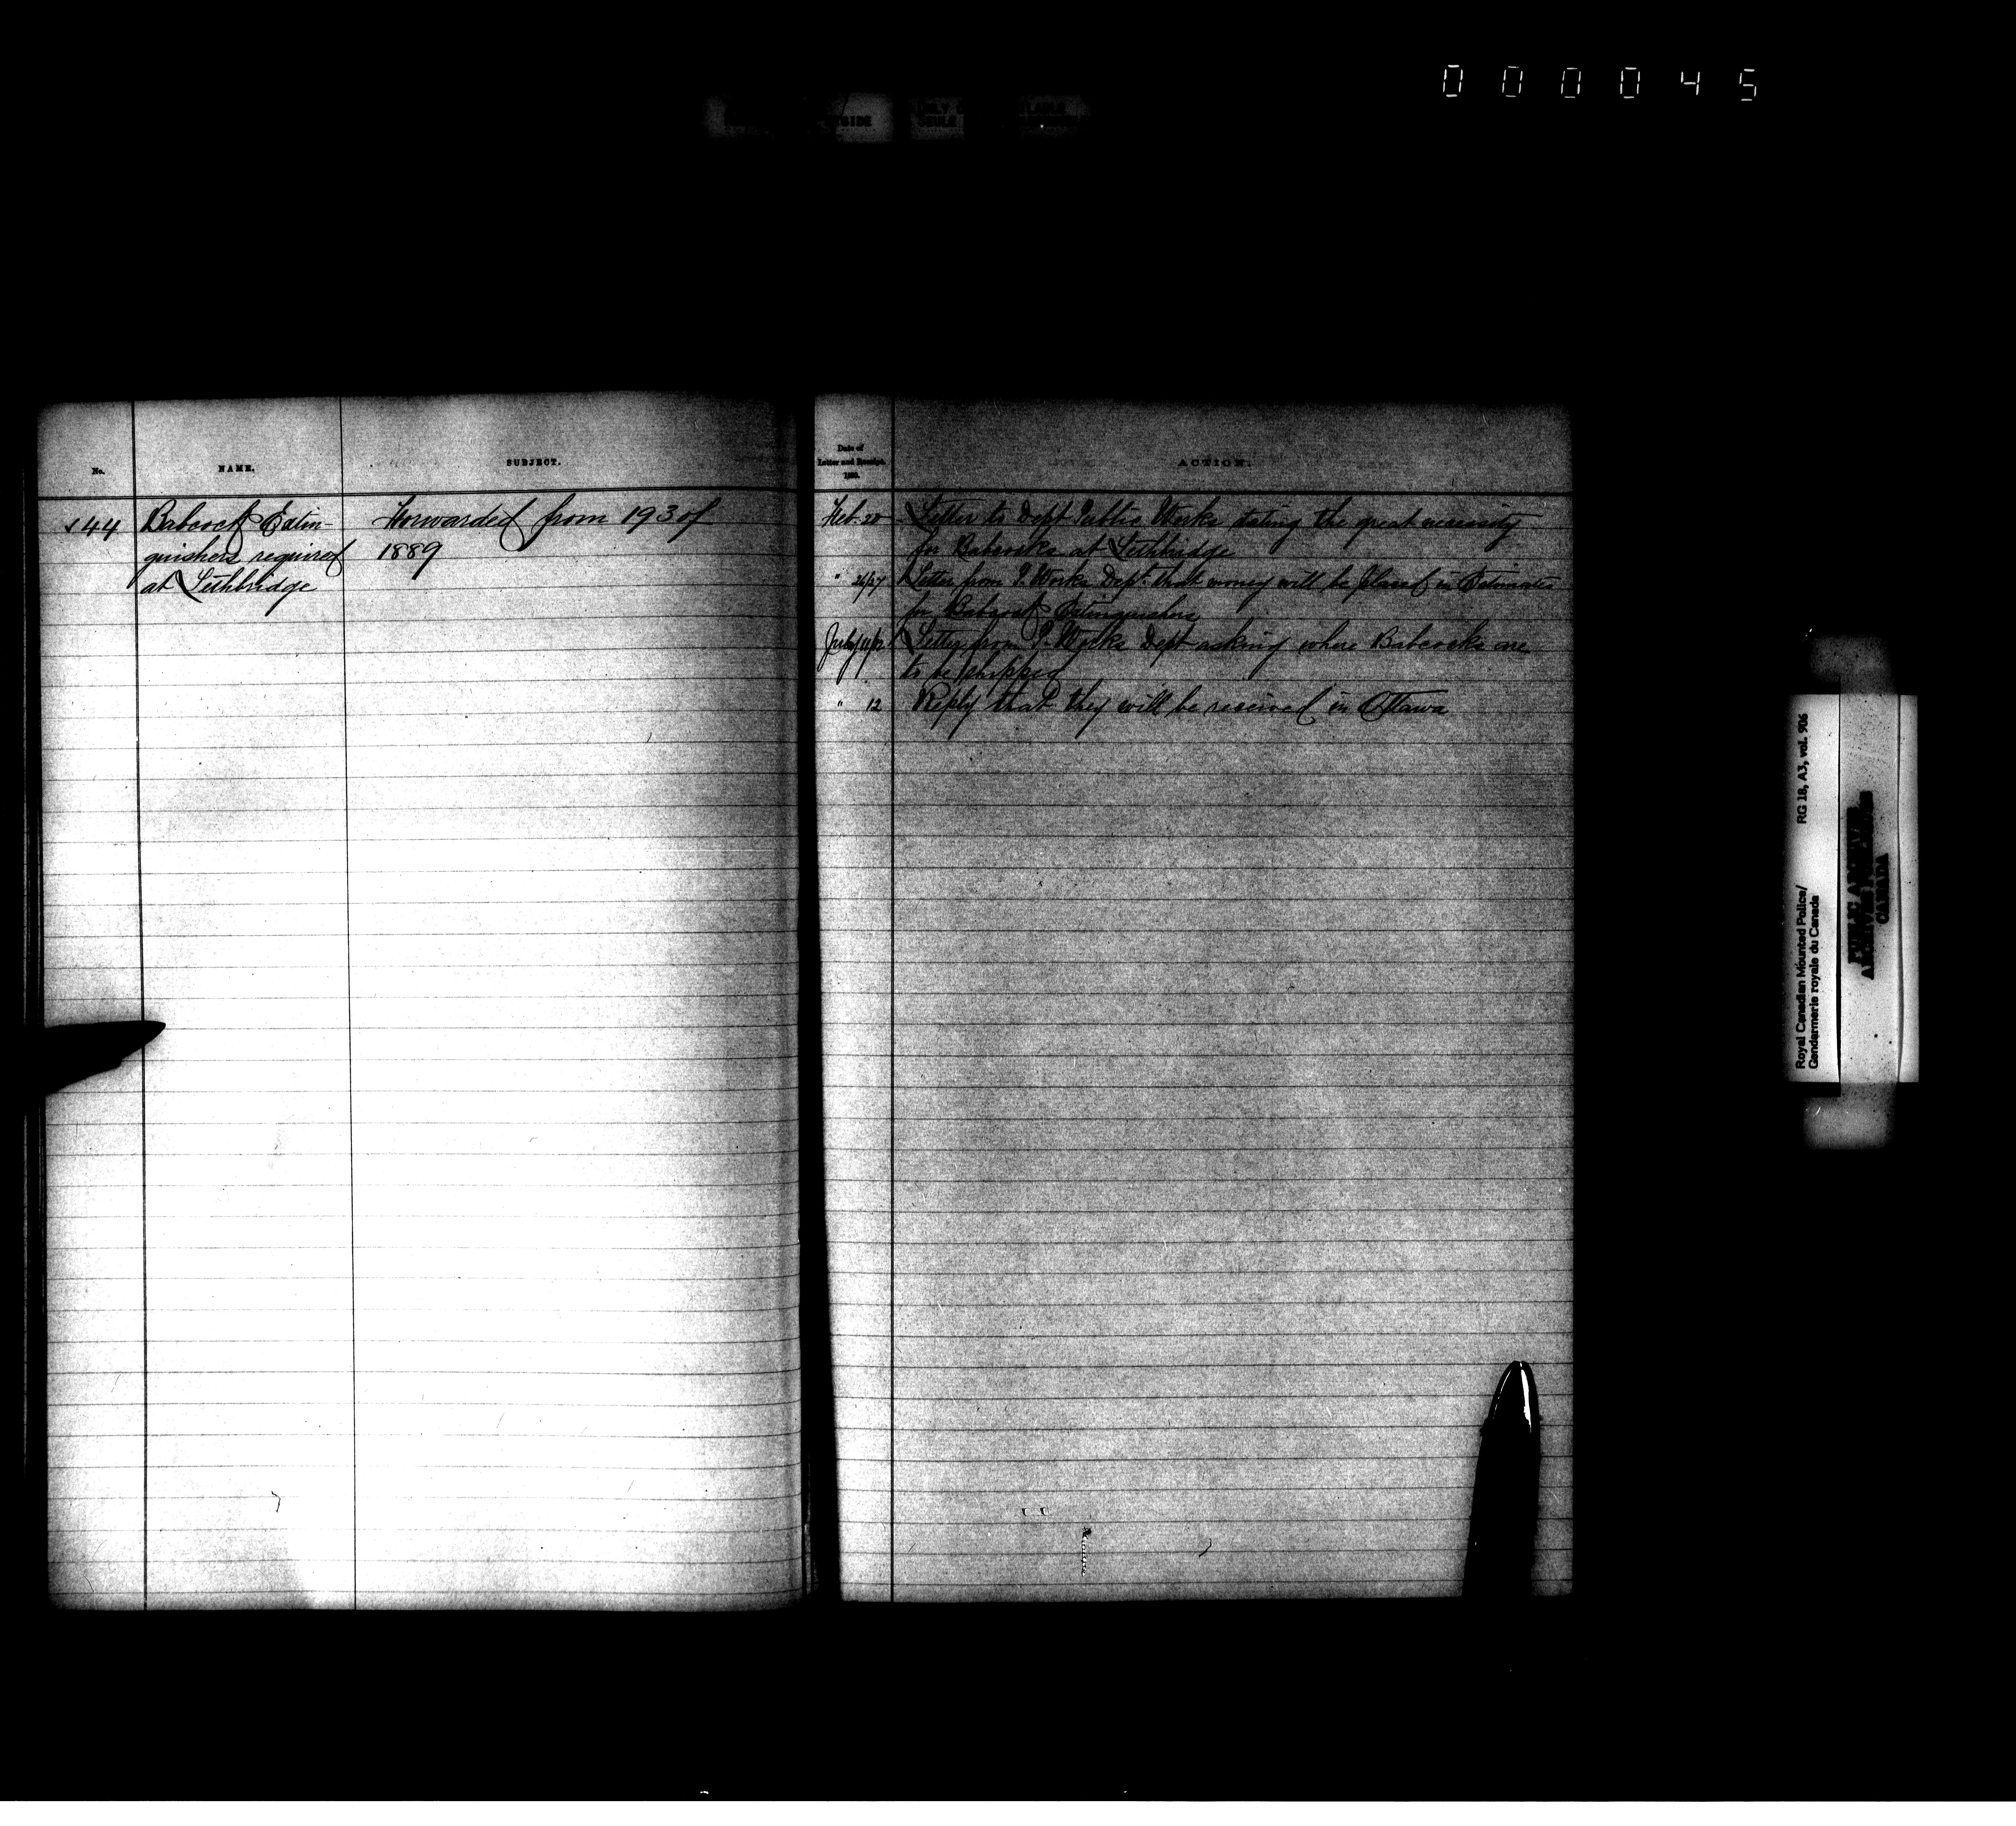 000045
No.
NAME.
SUBJECT.
✓44
Babcock Extin-
guishers required
at Lethbridge
Forwarded from 193 of
1889
Date of
Letter and Receipt.
1890.
ACTION.
Feb. 20 Letter to Dept Public Works stating the great necessity
for Babcocks at Lethbridge
" 26/27 Letter from P. Works Dept. that money will be placed in Estimates
for Babcock Extinguishers
July 11/12 Letter from P. Works Dept asking where Babcocks are
to be shipped
" 12 Reply that they will be received in Ottawa
Royal Canadian Mounted Police/
Gendarmerie royale du Canada
RG 18, A3, vol. 906
PUBLIC ARCHIVES
ARCHIVES
CANADA